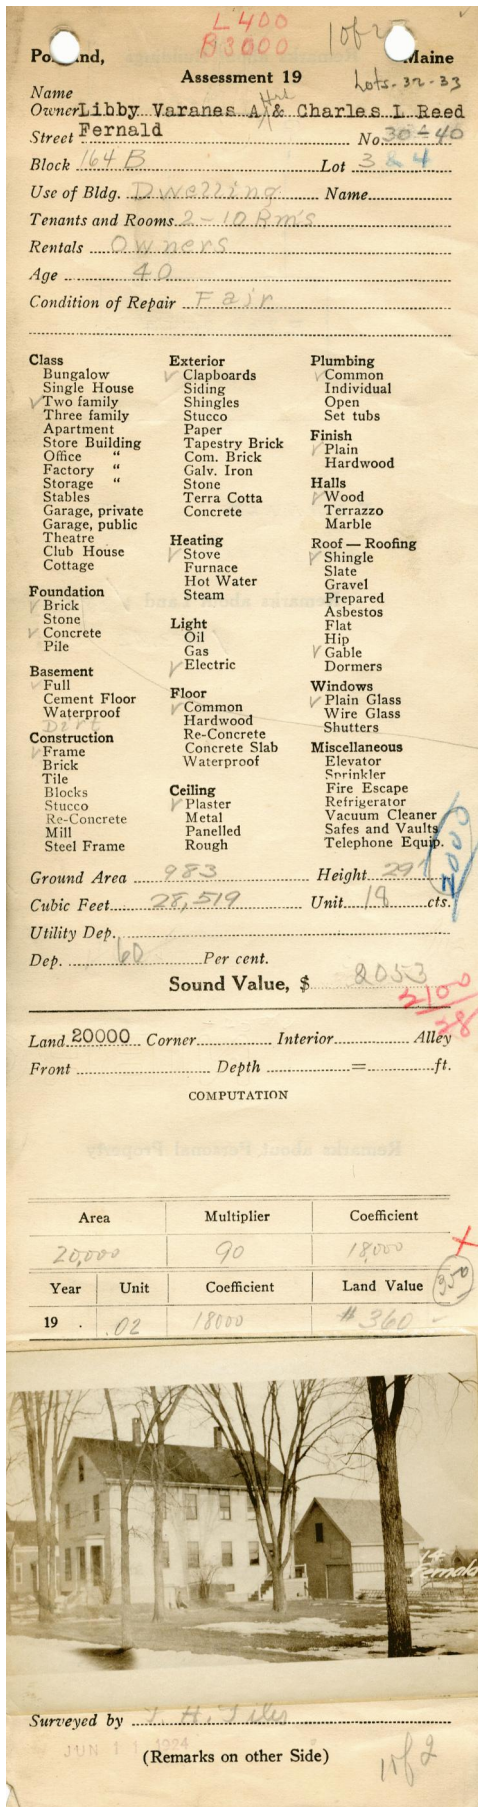 L 400
B 3000
1 of 2
Portland, Maine
Assessment 19
Lots-32-33
Name
Owner Libby Varanes A Hrs & Charles L Reed
Street Fernald No. 30-40
Block 164 B Lot 3 & 4
Use of Bldg. Dwelling Name
Tenants and Rooms 2-10 Rm's
Rentals Owners
Age 40
Condition of Repair Fair
Class
Bungalow
Single House
✓ Two family
Three family
Apartment
Store Building
Office "
Factory "
Storage "
Stables
Garage, private
Garage, public
Theatre
Club House
Cottage
Foundation
✓ Brick
Stone
✓ Concrete
Pile
Basement
✓ Full
Cement Floor
Waterproof
Dirt
Construction
✓ Frame
Brick
Tile
Blocks
Stucco
Re-Concrete
Mill
Steel Frame
Exterior
✓ Clapboards
Siding
Shingles
Stucco
Paper
Tapestry Brick
Com. Brick
Galv. Iron
Stone
Terra Cotta
Concrete
Heating
✓ Stove
Furnace
Hot Water
Steam
Light
Oil
Gas
✓ Electric
Floor
✓ Common
Hardwood
Re-Concrete
Concrete Slab
Waterproof
Ceiling
✓ Plaster
Metal
Panelled
Rough
Plumbing
✓ Common
Individual
Open
Set tubs
Finish
✓ Plain
Hardwood
Halls
✓ Wood
Terrazzo
Marble
Roof — Roofing
✓ Shingle
Slate
Gravel
Prepared
Asbestos
Flat
Hip
✓ Gable
Dormers
Windows
✓ Plain Glass
Wire Glass
Shutters
Miscellaneous
Elevator
Sprinkler
Fire Escape
Refrigerator
Vacuum Cleaner
Safes and Vaults
Telephone Equip.
Ground Area 983 Height 29'
Cubic Feet 28,519 Unit 18 cts.
Utility Dep.
Dep. 60 Per cent.
Sound Value, $ 2053
Land 20000 Corner Interior Alley
Front Depth = ft.
COMPUTATION
Area Multiplier Coefficient
20,000 90 18,000
Year Unit Coefficient Land Value
350
19 . .02 18000 # 360
14
Fernald
Surveyed by
JUN 11 1924
(Remarks on other Side)
1 of 2